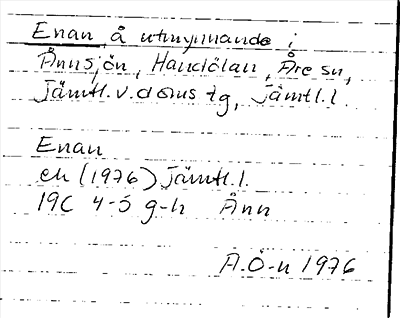 Enan å utmynnande i
Ånnsjön, Handölan, Åre sn,
Jämtl. v. doms tg, Jämtl. l
Enan
ek (1976) Jämtl. l.
19C 4-5 g-h Ånn
A.Ö-n 1976